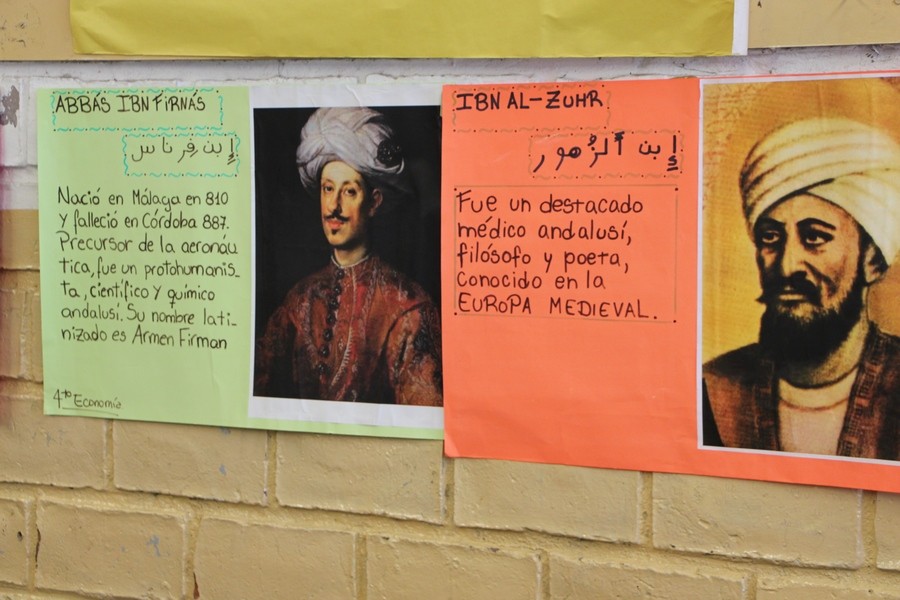 ABBÁS IBN FIRNÁS
إِبن فِرناس
Nació en Málaga en 810
y falleció en Córdoba 887.
Precursor de la aeronáu
tica, fue un protohumanis-
ta, científico y químico
andalusí. Su nombre lati-
nizado es Armen Firman
4to Economía
IBN AL-ZUHR
إِبن ٱلزُهور
Fue un destacado
médico andalusí,
filósofo y poeta,
conocido en la
EUROPA MEDIEVAL.